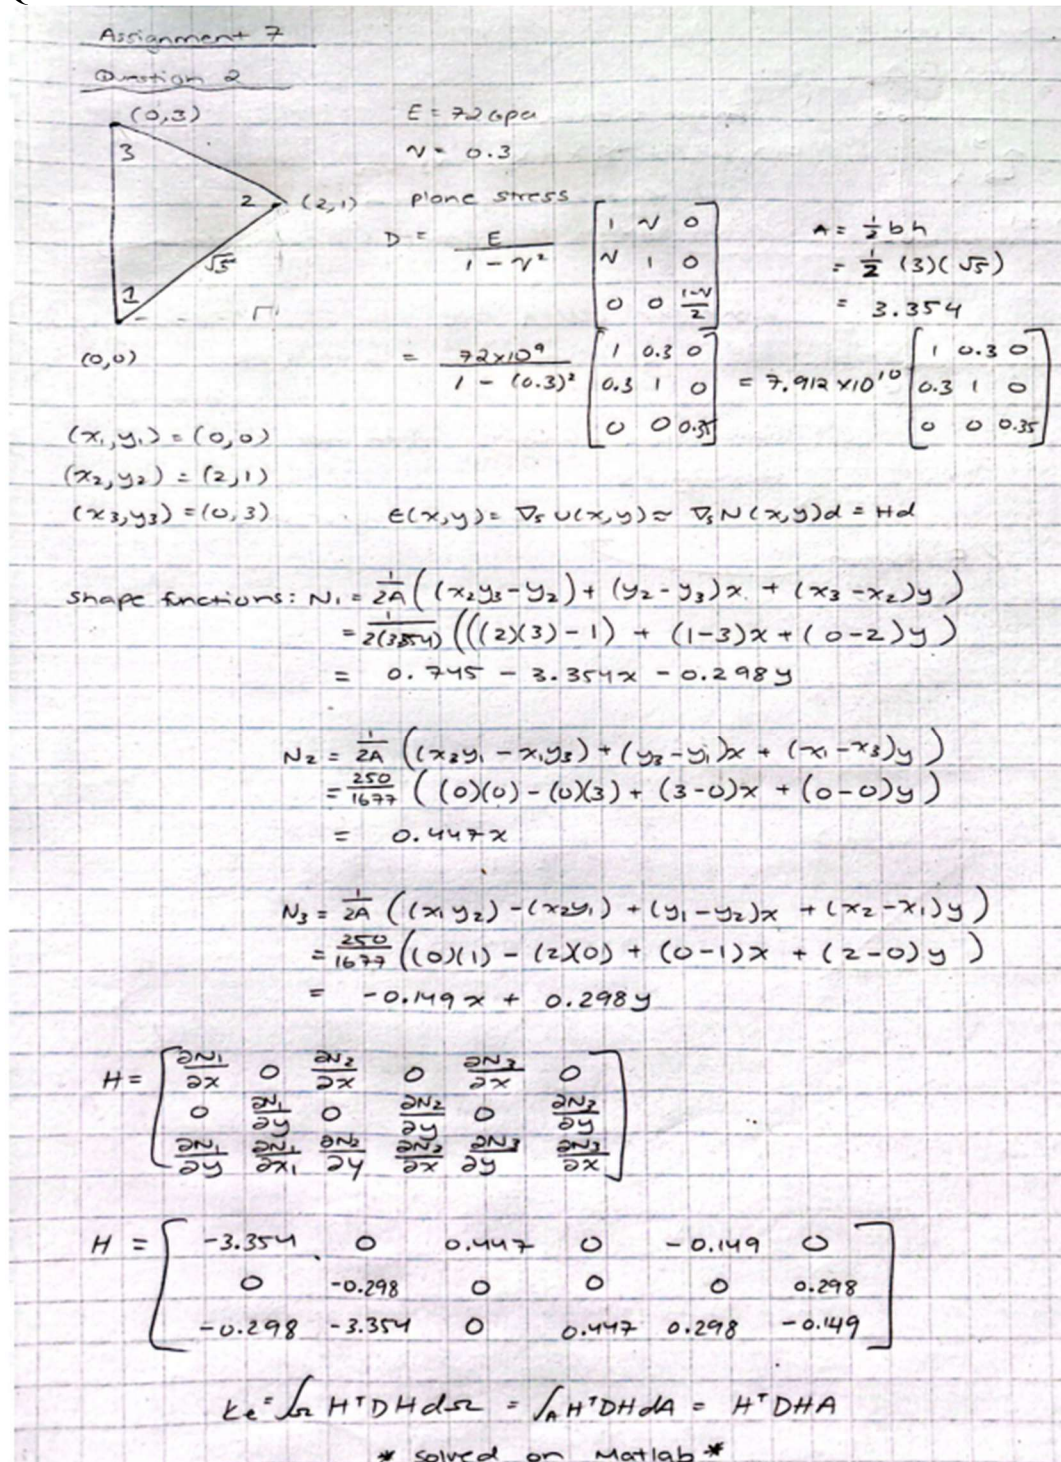 Assignment 7
Question 2
(0,3)
3
2
(2,1)
√5
1
(0,0)
E = 72 Gpa
ν = 0.3
plane stress
D = E / 1 - ν² [1 ν 0; ν 1 0; 0 0 1-ν/2]
A = 1/2 bh
= 1/2 (3)(√5)
= 3.354
= 72x10⁹ / 1 - (0.3)² [1 0.3 0; 0.3 1 0; 0 0 0.35] = 7.912 x10¹⁰ [1 0.3 0; 0.3 1 0; 0 0 0.35]
(x₁,y₁) = (0,0)
(x₂,y₂) = (2,1)
(x₃,y₃) = (0,3)
ε(x,y) = ∇ₛu(x,y) ≈ ∇ₛN(x,y)d = Hd
shape functions: N₁ = 1/2A ((x₂y₃-y₂) + (y₂-y₃)x + (x₃-x₂)y)
= 1/2(3.354) (((2)(3)-1) + (1-3)x + (0-2)y)
= 0.745 - 3.354x - 0.298y
N₂ = 1/2A ((x₃y₁ - x₁y₃) + (y₃-y₁)x + (x₁-x₃)y)
= 250/1677 ((0)(0) - (0)(3) + (3-0)x + (0-0)y)
= 0.447x
N₃ = 1/2A ((x₁y₂) - (x₂y₁) + (y₁-y₂)x + (x₂-x₁)y)
= 250/1677 ((0)(1) - (2)(0) + (0-1)x + (2-0)y)
= -0.149x + 0.298y
H = [∂N₁/∂x 0 ∂N₂/∂x 0 ∂N₃/∂x 0
0 ∂N₁/∂y 0 ∂N₂/∂y 0 ∂N₃/∂y
∂N₁/∂y ∂N₁/∂x₁ ∂N₂/∂y ∂N₂/∂x ∂N₃/∂y ∂N₃/∂x]
H = [-3.354 0 0.447 0 -0.149 0
0 -0.298 0 0 0 0.298
-0.298 -3.354 0 0.447 0.298 -0.149]
Ke = ∫Ω HᵀDHdΩ = ∫A HᵀDHdA = HᵀDHA
* solved on Matlab *